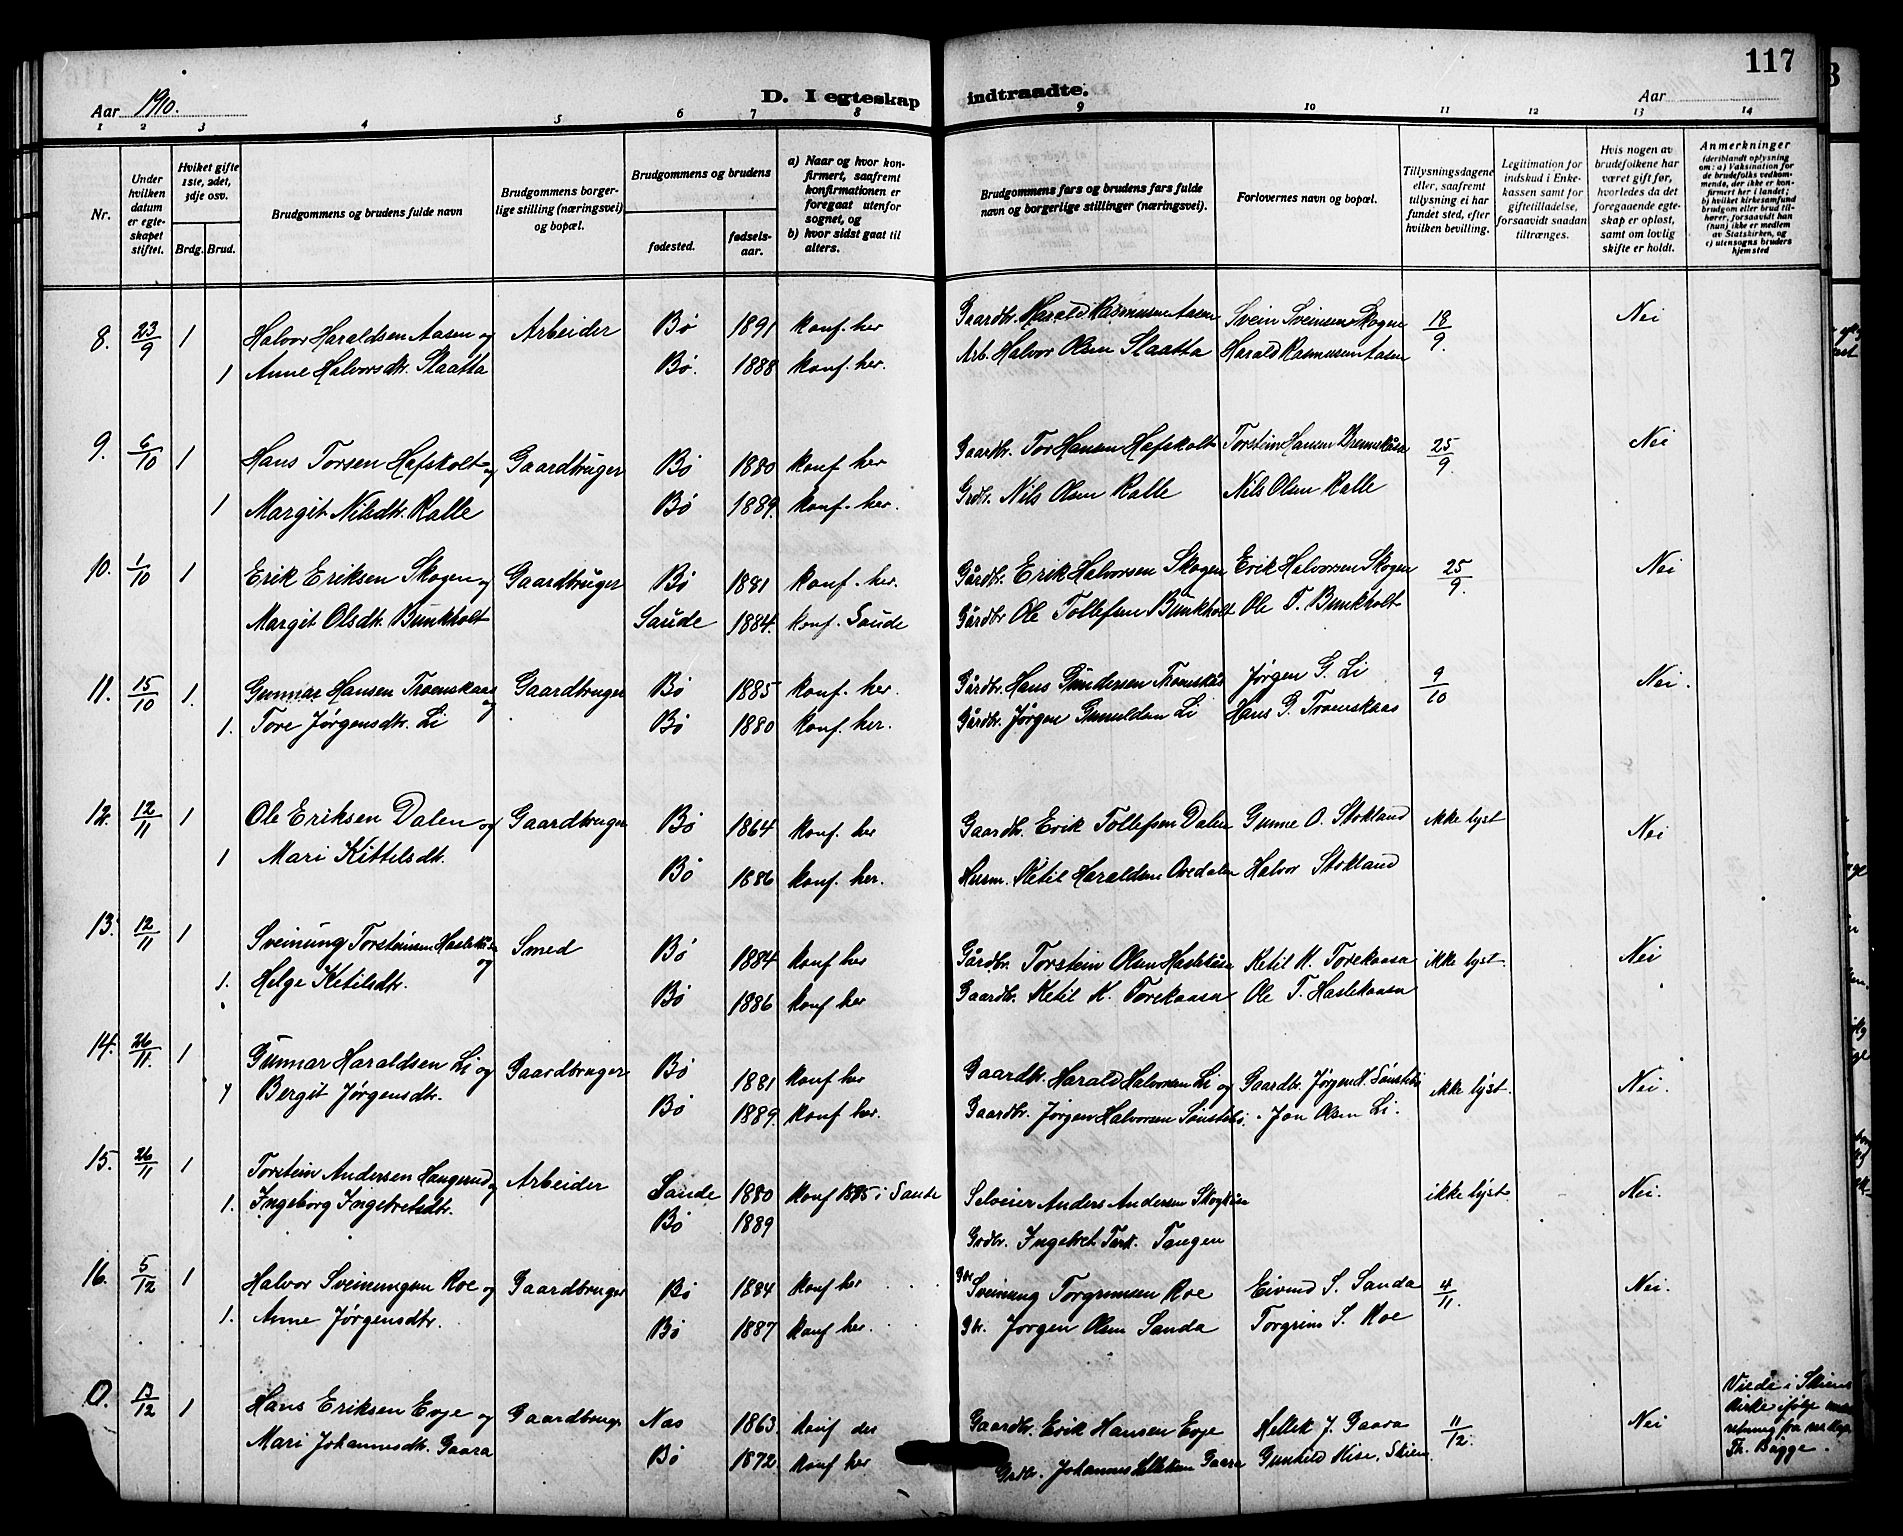 117
Aar 1910.
D. I egteskap indtraadte.
Aar
1 2 3 4 5 6 7 8 9 10 11 12 13 14
Nr.
Under hvilken datum er egteskapet stiftet.
Hvilket gifte 1ste, 2det, 3dje osv.
Brdg. Brud.
Brudgommens og brudens fulde navn
Brudgommens borgerlige stilling (næringsvei) og bopæl.
Brudgommens og brudens
fødested.
fødselsaar.
a) Naar og hvor konfirmert, saafremt konfirmationen er foregaat utenfor sognet, og
b) hvor sidst gaat til alters.
Brudgommens fars og brudens fars fulde navn og borgerlige stillinger (næringsvei).
Forlovernes navn og bopæl.
Tillysningsdagene eller, saafremt tillysning ei har fundet sted, efter hvilken bevilling.
Legitimation for indskud i Enkekassen samt for giftetilladelse, forsaavidt saadan tiltrænges.
Hvis nogen av brudefolkene har været gift før, hvorledes da det foregaaende egteskap er opløst, samt om lovlig skifte er holdt.
Anmerkninger
(deriblandt oplysning om: a) Vaksination for de brudefolks vedkommende, der ikke er konfirmert her i landet; b) hvilket kirkesamfund brudgom eller brud tilhører, forsaavidt han (hun) ikke er medlem av Statskirken, og c) utensogns bruders hjemsted
8. 23/9 1 Halvor Haraldsen Aasen og Arbeider Bø 1891 Konf. her Gaardbr. Harald Rasmussen Aasen Svein Sveinsen Skogen 18/9. Nei
1 Anne Halvorsdtr. Slaatta Bø. 1888 Konf. her. Arb. Halvor Olsen Slaatta Harald Rasmussen Aasen
9. 6/10 1 Hans Torsen Hafskolt og Gaardbruger Bø 1880 Konf. her Gaardbr. Tor Hansen Hafskolt Torstein Hansen 25/9. Nei
1 Margit Nilsdtr. Kalle Bø 1889. Konf. her. Grdbr. Nils Olsen Kalle Nils Olsen Kalle
10. 1/10 1 Erik Eriksen Skogen og Gaardbruger Bø 1881 Konf. her. Gårdbr. Erik Halvorsen Skogen Erik Halvorsen Skogen 25/9. Nei
Margit Olsdtr. Bunkholt Saude 1884. Konf. Saude Gårdbr Ole Tollefsen Bunkholt Ole T. Bunkholt
11. 15/10 1. Gunnar Hansen Troenskaas og Gaardbruger Bø 1885 Konf. her. Gårdbr. Hans Gundersen Jørgen G. Li 9/10 Nei.
1. Tore Jørgensdtr. Li Bø 1880 Konf. her. Gårdbr. Jørgen Gunuldsen Li Hans G. Troenskaas
12. 12/11 1 Ole Eriksen Dalen og Gaardbruger Bø 1864 Konf. her Gaardb. Erik Tollefsen Dalen Gunne O. Stokland ikke lyst Nei
1 Mari Kittelsdtr. Bø 1886 Konf. her. Husm. Ketil Haraldsen Oredalen Halvor Stokland
13. 12/11 1 Sveinung Torsteinsen og Smed Bø 1884 Konf her Gårdbr. Torstein Olsen Ketil K. Torekaasa ikke lyst. Nei
1. Helge Ketilsdtr. Bø 1886 Konf her Gaardbr. Ketil K. Torekaasa Ole T. Haslekaasa
14. 26/11. 1 Gunnar Haraldsen Li og Gaardbruger Bø 1881 Konf her Gaardbr. Harald Halvorsen Li og Gaardbr. Jørgen H. Sønstebø ikke lyst. Nei.
1 Bergit Jørgensdtr. Bø 1889. Konf her. Gaardbr. Jørgen Halvorsen Sønstebø. Jon Olsen Li.
15. 26/11 1 Torstein Andersen Haugerud og Arbeider Saude 1880 Konf 1895 i Saude Selveier Anders Andersen ikke lyst. Nei.
1. Ingeborg Ingebretsdtr. Bø 1889 Grdbr. Ingebret Tangen
16. 5/12 1 Halvor Sveinungsen Roe og Gaardbruger Bø 1884 Konf her Gbr Sveinung Torgrimsen Roe Eivind S. Sanda 4/11. Nei.
1. Anne Jørgensdtr. Bø 1887 Konf her. Gbr. Jørgen Olsen Sanda Torgrim S. Roe
0. 13/12 1 Hans Eriksen Evje og Gaardbrugr Nas 1863 Konf der Gaardbr. Erik Hansen Evje Hellek J. Gaara 11/12. Nei Viede i Skiens Kirke ifølge
Mari Johannesdtr. Gaara Bø 1872 Konf her Grdbr. Johannes Gaara Gunhild Kise, Skien. Th. Bagge.